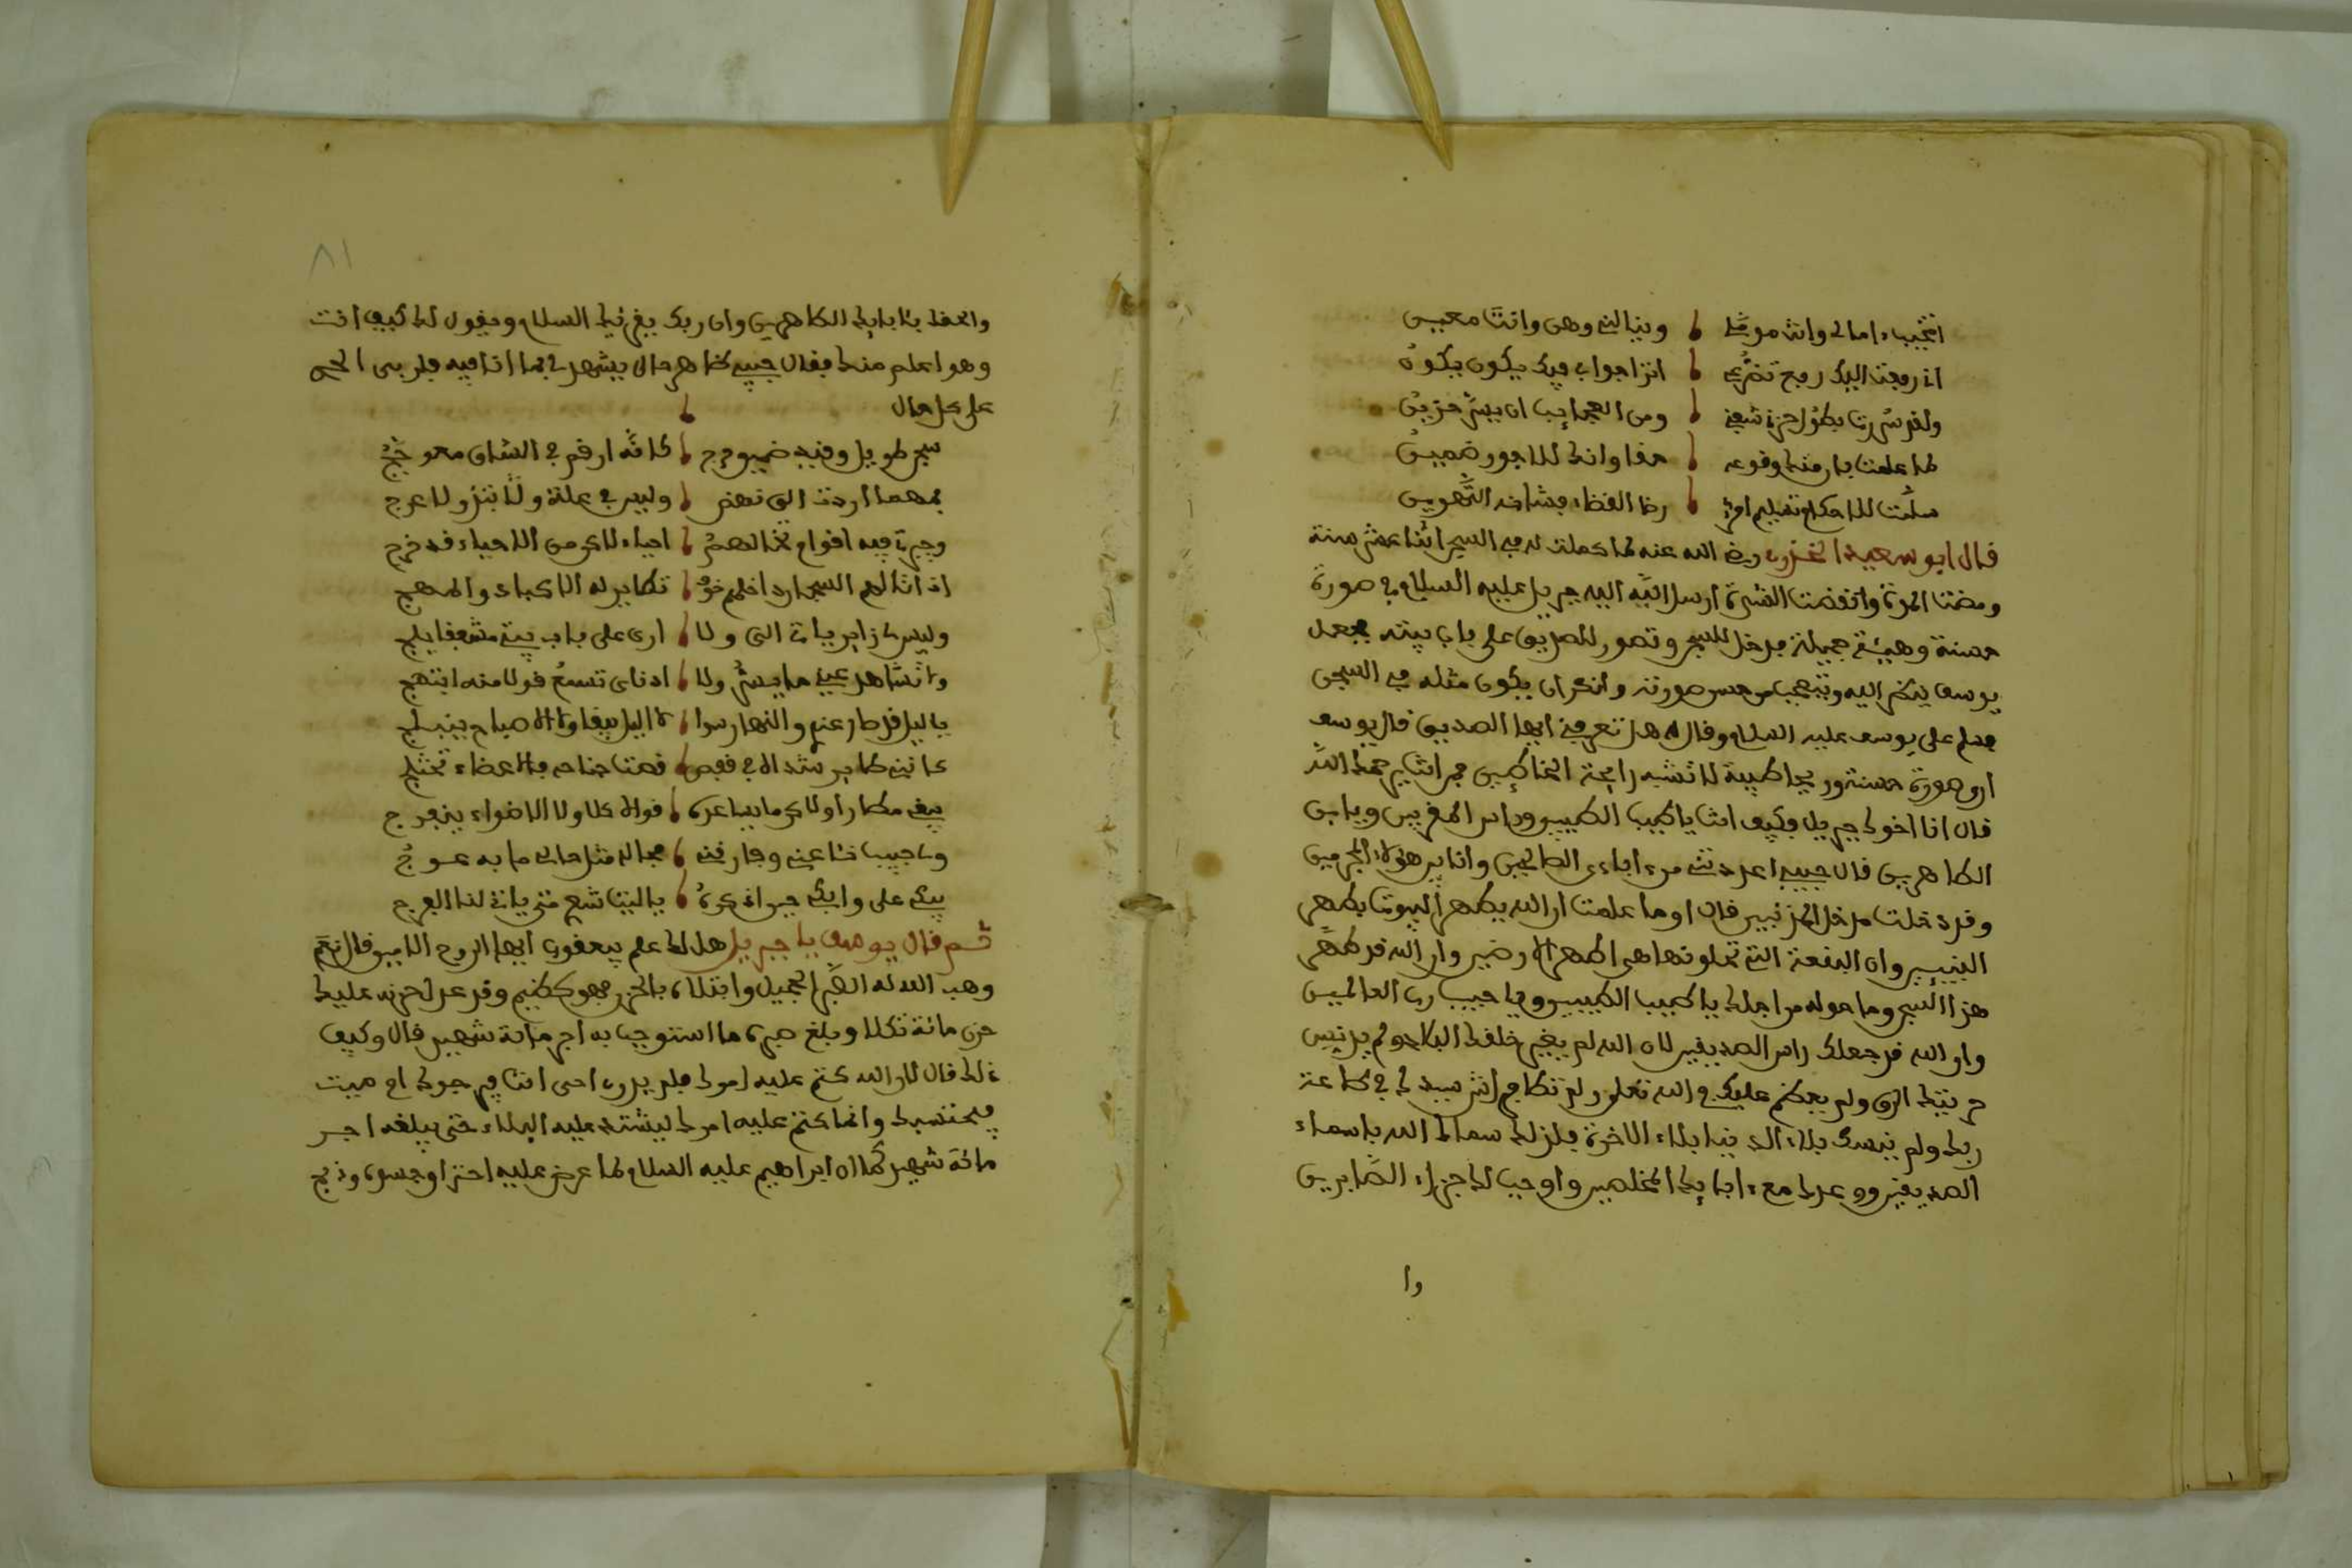 وينالني وهن وانت معين
اتزا جوابي فيك يكون يكون
ومن العجايب ان يسر حزين
حقا وانك للاجور ضمين
رضا القضاء فشانه التهوين
قال ابو سعيد رضي الله عنه لما كملت له في السجن اثنا عشر سنة
ومضت المدة وانقضت الشدة ارسل الله اليه جبريل عليه السلام في صورة
حسنة وهيئة جميلة فدخل للسجن وتصور للصديق على باب بيته فجعل
يوسف ينظر اليه ويتعجب من حسن صورته وأنكر ان يكون مثله في السجن
فسلم على يوسف عليه السلام وقال له هل تعرفني ايها الصديق قال يوسف
ارى صورة حسنة وريحا طيبة لا تشبه رايحة الخاطيين فمن انت يرحمك الله
قال انا اخوك جبريل وكيف انت يا طيب الطيبين وراس المقربين ويا بن
الطاهرين قال حبيبي اعددتني من ءاباءي الصالحين وانا بين هؤلاء المجرمين
وقد دخلت مدخل المذنبين قال او ما علمت ان الله يطهر البيوت بطهر
النبيين وان البقعة التي تحلونها هي اطهر الارضين وان الله قد طهر
هذا السجن وما حوله من اجلك يا طيب الطيبين ويا حبيب رب العالمين
وان الله قد جعلك راس الصديقين لان الله لم يغير خلقك البلاء ولم يدنس
حريتك الرق ولم يعظم عليك في الله تعلى ولم تطاوع انثى سيدك في طاعة
ربك ولم ينسك بلاء الدنيا بلاء الاخرة فلذلك سماك الله باسماء
الصديقين وعدك مع ءابايك المخلصين واوجب لك جزاء الصابرين
وا
٨١
والحقك بئابايك الطاهرين وان ربك يقرئك السلام ويقول لك كيف انت
وهو اعلم منك فقال حبيبي ظاهر حالي يشهد لي بما انا فيه فلربي الحمد
على كل حال
سجن طويل وقيد كانه ارقم في الساق معوج
مهما اردت الى نهض وليس في علة ولا عرج
وجيرة فيه اقوام تخالهم احياء لاكن من الاحياء قد خرج
اذ اتاهم السجان داخلهم خوف تطاير له الاكباد والمهج
وليس لي زاير يات الي ولا ارى على باب بيتي مشفقا يلج
ولا تشاهد عيني ما يسر ولا اذناي تسمع قولا منه ابتهج
يا ليل قد طار عني والنهار سوا لا الليل يبقى ولا الاصباح ينبلج
كانني طاير في قفص قصت جناحه فالاعضاء تختلج
يبغي مطارا ولاكن ما يساعده قواه كلا ولا الاضواء ينفرج
يبكي على وابكي حين اذكره يا ليت شعري متى ياتي لنا الفرج
ثم قال يوسف يا جبريل هل لك علم بيعقوب ايها الروح الامين قال نعم
وهب الله له الصبر الجميل وابتلاه بالحزن فهو كظيم وقد عدل حزنه عليك
حزن مائة ثكلا وبلغ صبره ما استوجب به اجر ماية شهيد قال وكيف
ذلك قال لان الله كتم عليه امرك فلم يدر احي انت فيرجوك ام ميت
فيحتسبك وانما كتم عليه امرك ليشتد عليه البلاء حتى يبلغه اجر
مائة شهيد كما ان ابراهيم عليه السلام لما عرض عليه وذبح